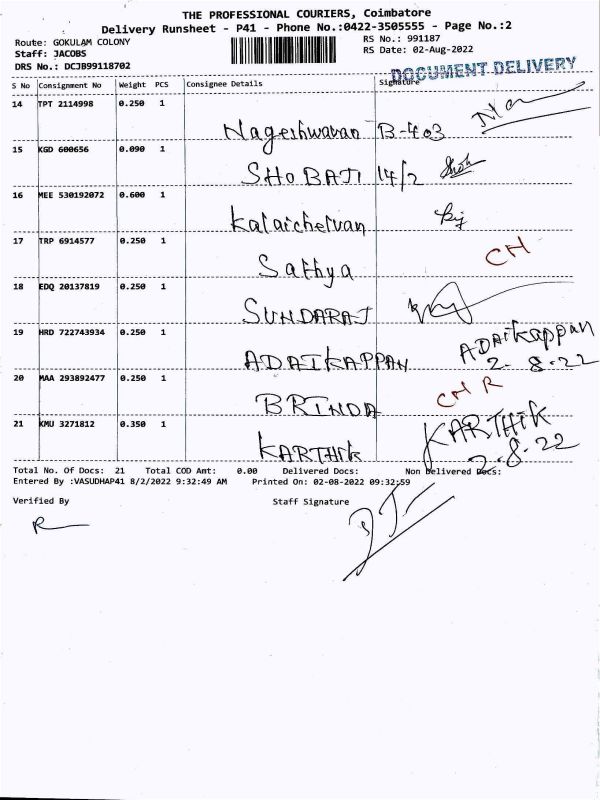 THE PROFESSIONAL COURIERS, Coimbatore
Delivery Runsheet - P41 - Phone No.:0422-3505555 - Page No.:2
Route: GOKULAM COLONY
RS No.: 991187
Staff: JACOBS
RS Date: 02-Aug-2022
DRS No.: DCJB99118702
DOCUMENT DELIVERY
S No Consignment No Weight PCS Consignee Details Signature
14 TPT 2114998 0.250 1
Nageshwaran B-403
15 KGD 600656 0.090 1
SHOBAJI 14/2
16 MEE 530192072 0.600 1
Kalaichelvan
17 TRP 6914577 0.250 1
Sathya CH
18 EDQ 20137819 0.250 1
SUNDARAJ
19 HRD 722743934 0.250 1
ADAIKAPPAN ADAikappan
2-8-22
20 MAA 293892477 0.250 1
BRINDA CHR
21 KMU 3271812 0.350 1
KARTHIK KARTHIK
2-8-22
Total No. Of Docs: 21 Total COD Amt: 0.00 Delivered Docs: Non Delivered Docs:
Entered By :VASUDHAP41 8/2/2022 9:32:49 AM Printed On: 02-08-2022 09:32:59
Verified By Staff Signature